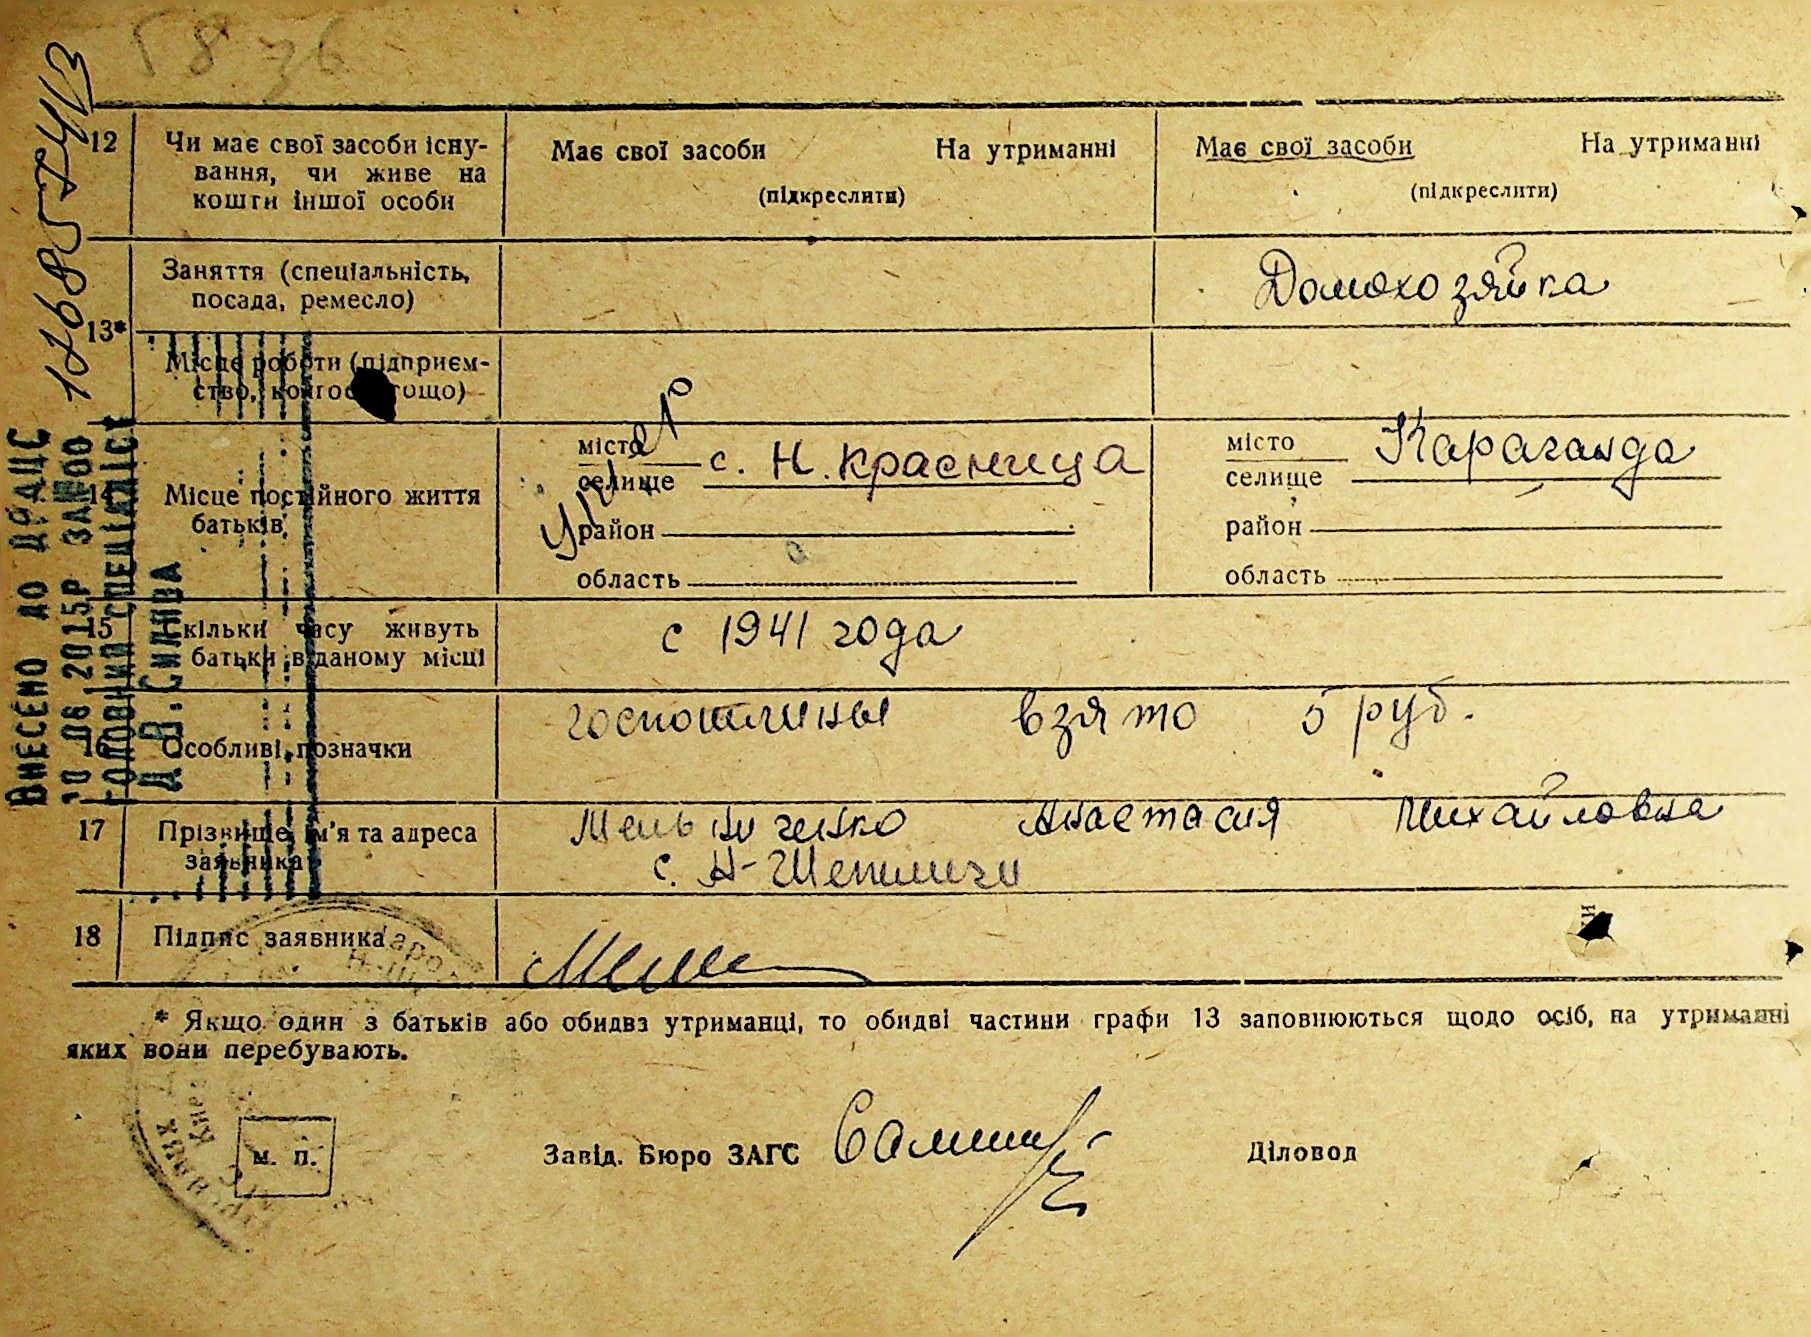 5876
12 Чи має свої засоби існу- Має свої засоби На утриманні Має свої засоби На утриманні
вання, чи живе на (підкреслити) (підкреслити)
кошти іншої особи
13* Заняття (спеціальність, Домохозяйка
посада, ремесло)
Місце роботи (підприєм-
ство, колгосп тощо)
14 Місце постійного життя місто с. Н. Красница місто Караганда
батьків селище селище
район район
область область
15 Скільки часу живуть с 1941 года
батьки в даному місці
16 Особливі позначки госпошлины взято 5 руб.
17 Прізвище, ім'я та адреса Мельниченко Анастасия Михайловна
заявника с. Н-Шепиличи
18 Підпис заявника
* Якщо один з батьків або обидва утриманці, то обидві частини графи 13 заповнюються щодо осіб, на утриманні
яких вони перебувають.
м. п. Завід. Бюро ЗАГС Діловод
Внесено до ДРАЦС
10 06 2015р за №00
головний спеціаліст
Д.В.Силіва